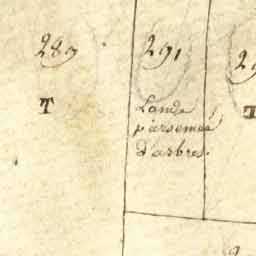 289
291
T
Lande
parsemée
d'arbres.